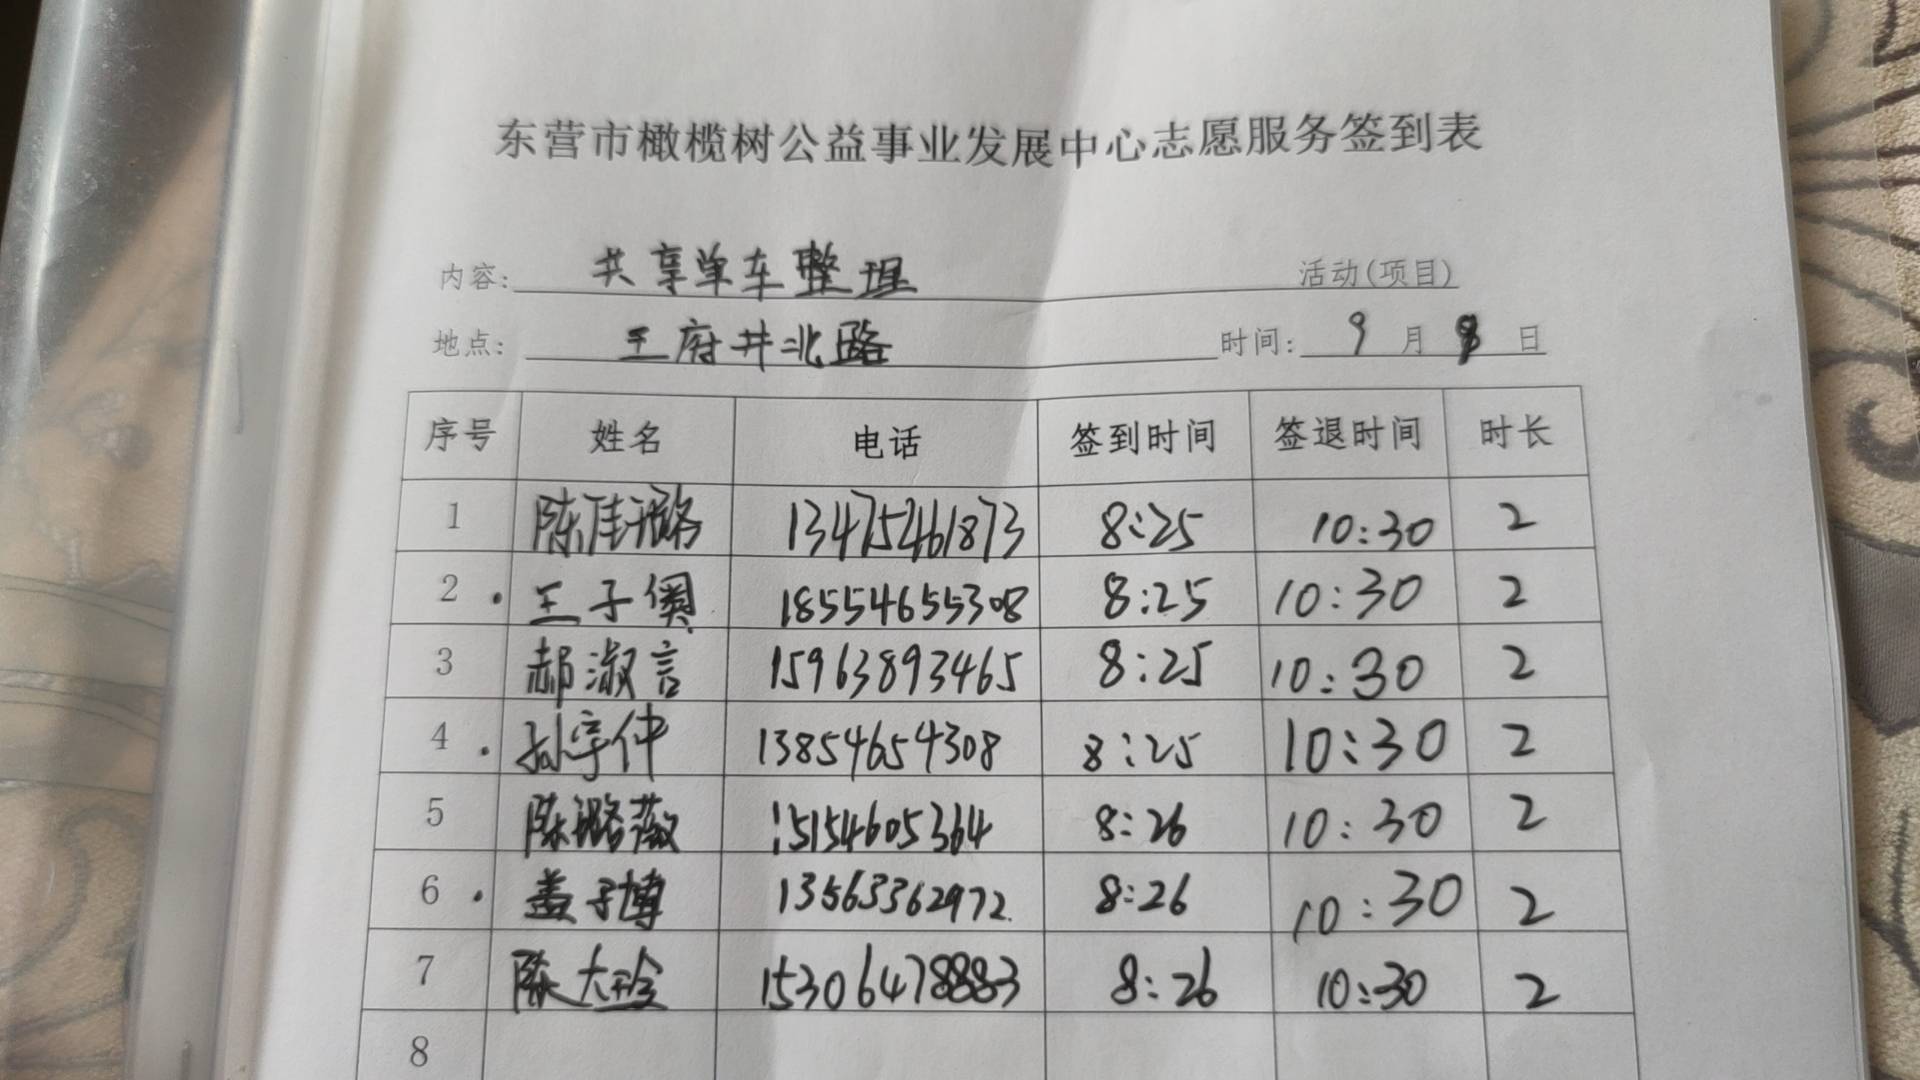 东营市橄榄树公益事业发展中心志愿服务签到表
内容: 共享单车整理 活动(项目)
地点: 王府井北路 时间: 9月 日
序号 姓名 电话 签到时间 签退时间 时长
1 陈佳璐 13475461873 8:25 10:30 2
2 王子 18554655308 8:25 10:30 2
3 郝淑言 15963893465 8:25 10:30 2
4 孙宇仲 13854654308 8:25 10:30 2
5 陈璐薇 15154605364 8:26 10:30 2
6 盖子博 13563362972 8:26 10:30 2
7 陈大 15306478883 8:26 10:30 2
8